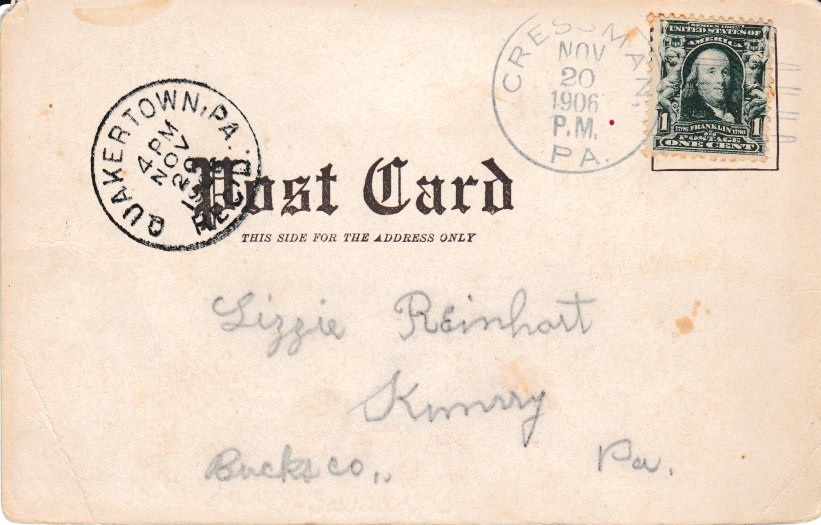 CRESSMAN,
NOV
20
1906
P.M.
PA.
SERIES 1902
UNITED STATES OF
AMERICA
1 1706 FRANKLIN 1790 1
POSTAGE
ONE CENT
QUAKERTOWN, PA.
4 PM
NOV
20
1906
REC'D
Post Card
THIS SIDE FOR THE ADDRESS ONLY
Lizzie Reinhart
Bucks co., Pa.